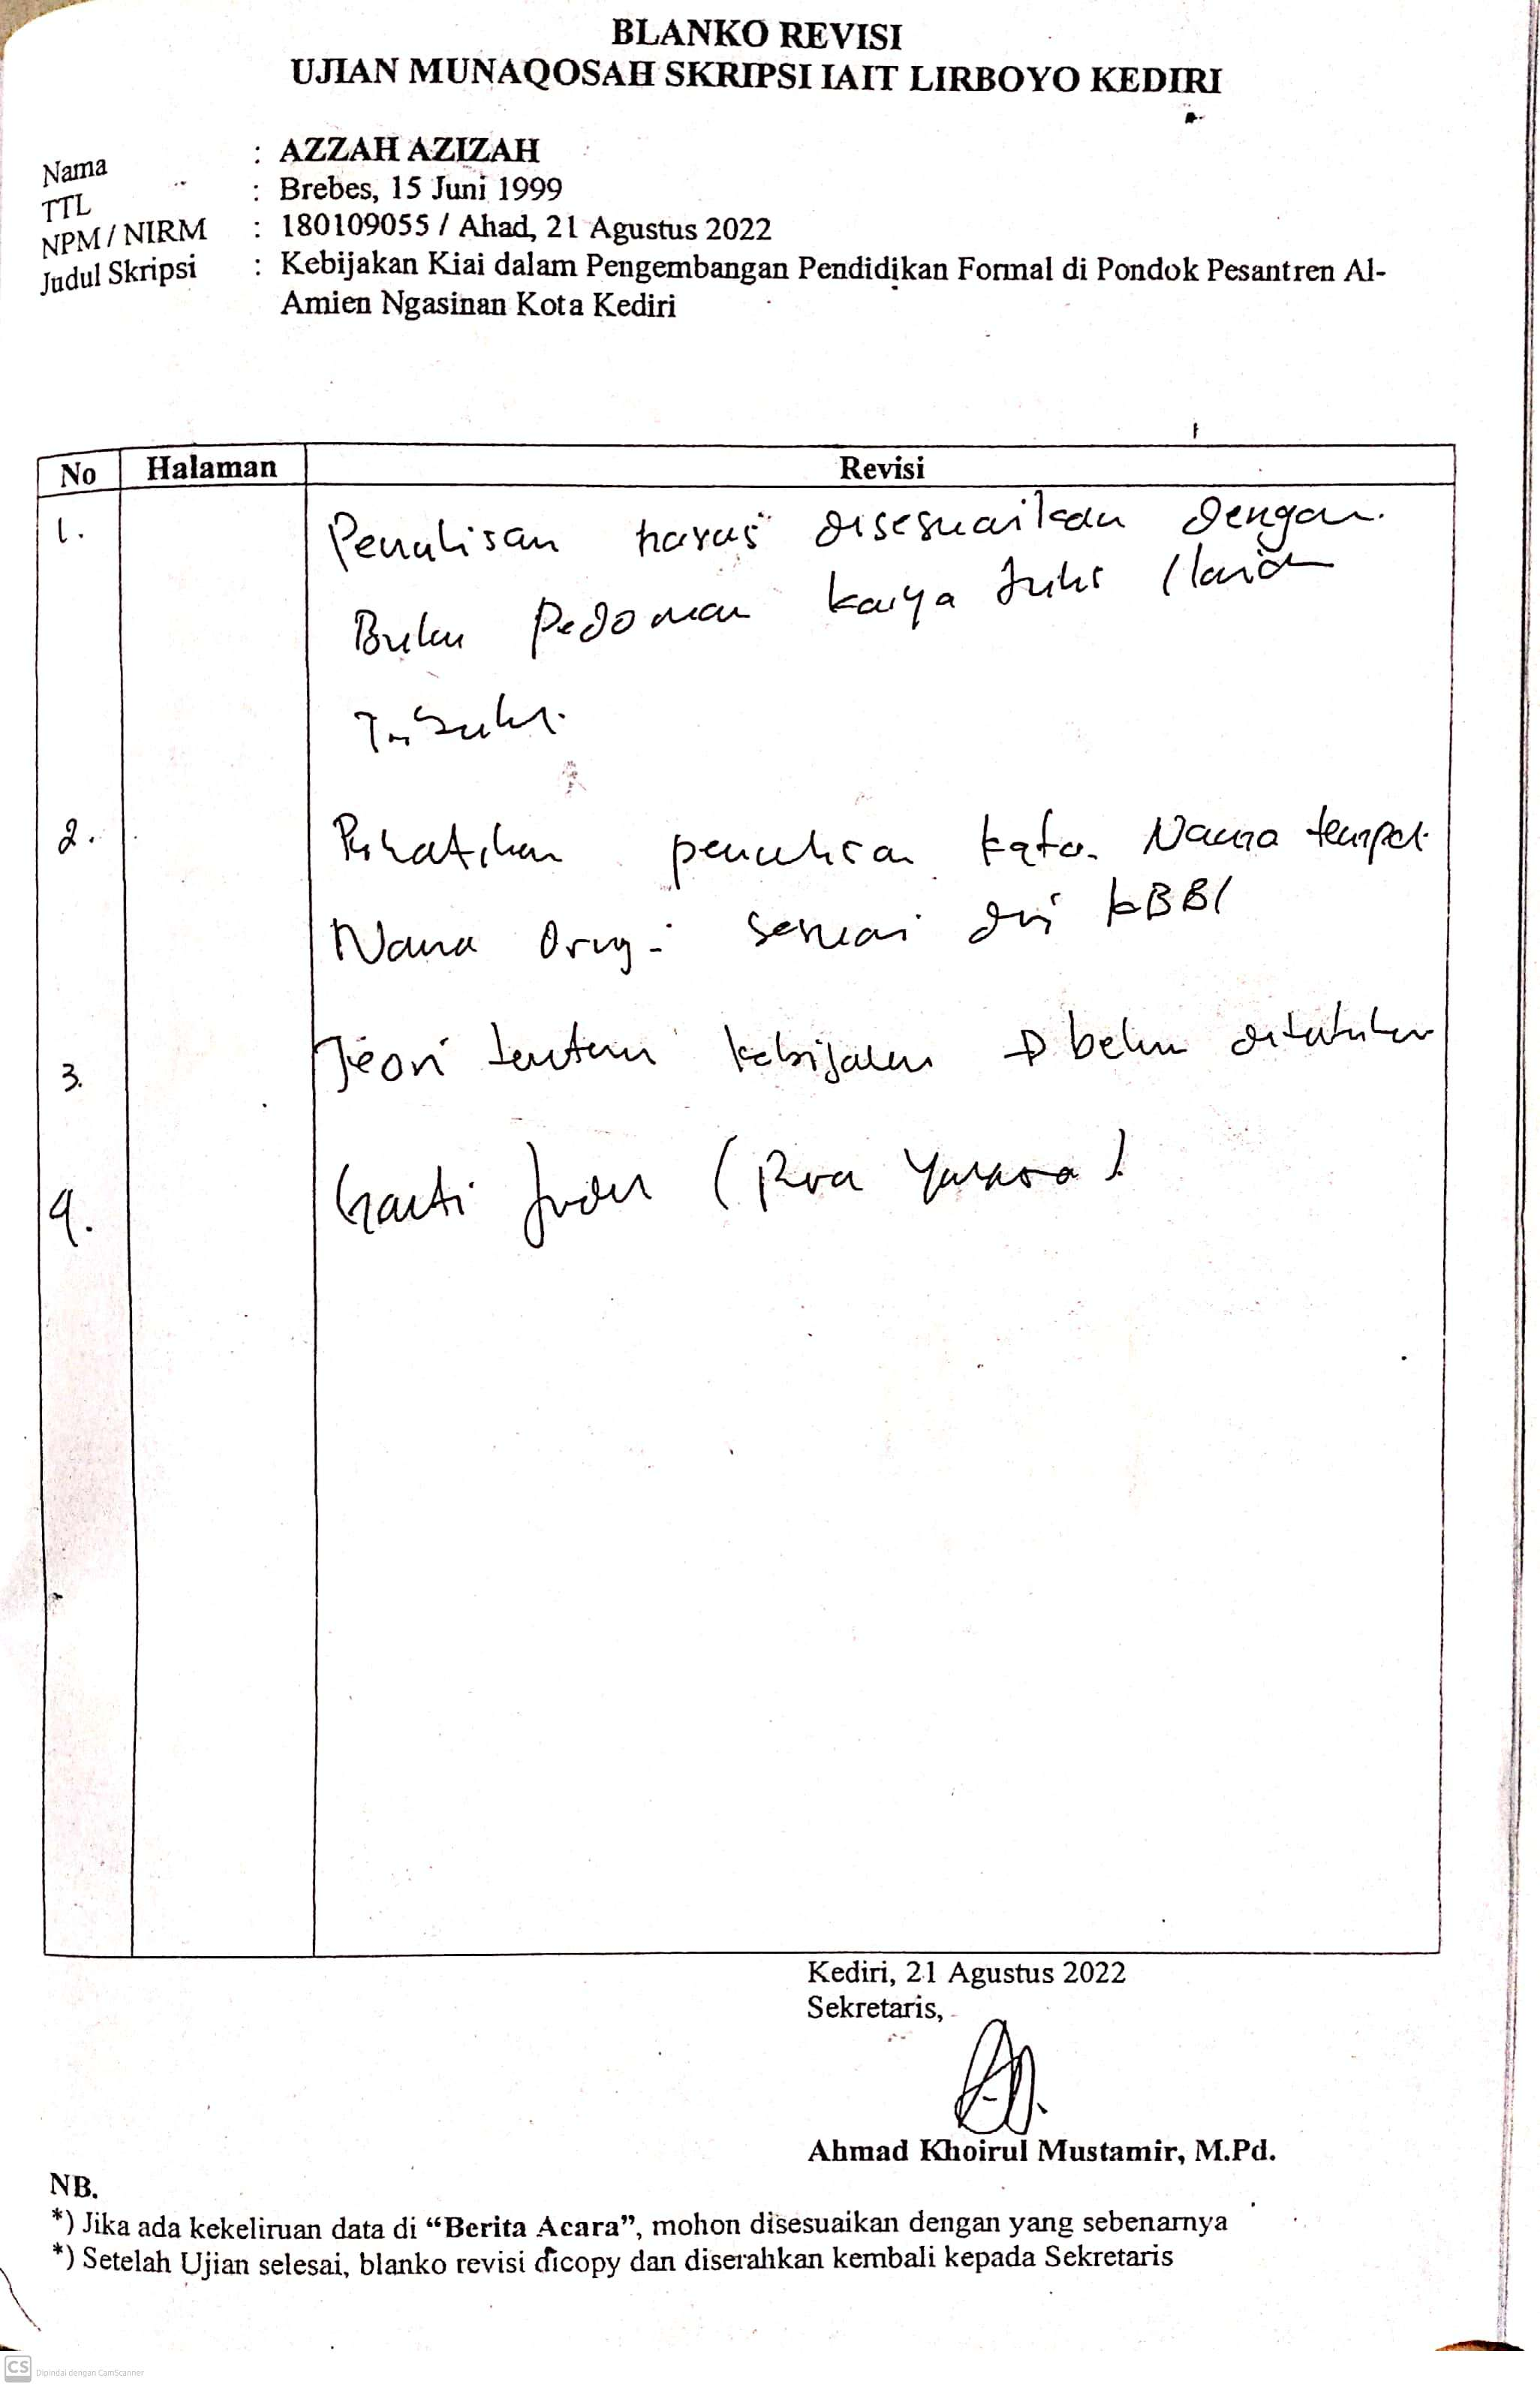 BLANKO REVISI
UJIAN MUNAQOSAH SKRIPSI IAIT LIRBOYO KEDIRI
Nama : AZZAH AZIZAH
TTL : Brebes, 15 Juni 1999
NPM / NIRM : 180109055 / Ahad, 21 Agustus 2022
Judul Skripsi : Kebijakan Kiai dalam Pengembangan Pendidikan Formal di Pondok Pesantren Al-
Amien Ngasinan Kota Kediri
No Halaman Revisi
1. Penulisan harus disesuaikan dengan
Buku Pedoman karya tulis Ilmiah
2. Perhatikan penulisan kata. Nama tempat
Nama Orang sesuai dri KBBI
3. Teori tentang kebijakan belum
4. Ganti Judul
Kediri, 21 Agustus 2022
Sekretaris,
Ahmad Khoirul Mustamir, M.Pd.
NB.
*) Jika ada kekeliruan data di “Berita Acara”, mohon disesuaikan dengan yang sebenarnya
*) Setelah Ujian selesai, blanko revisi dicopy dan diserahkan kembali kepada Sekretaris
CS Dipindai dengan CamScanner